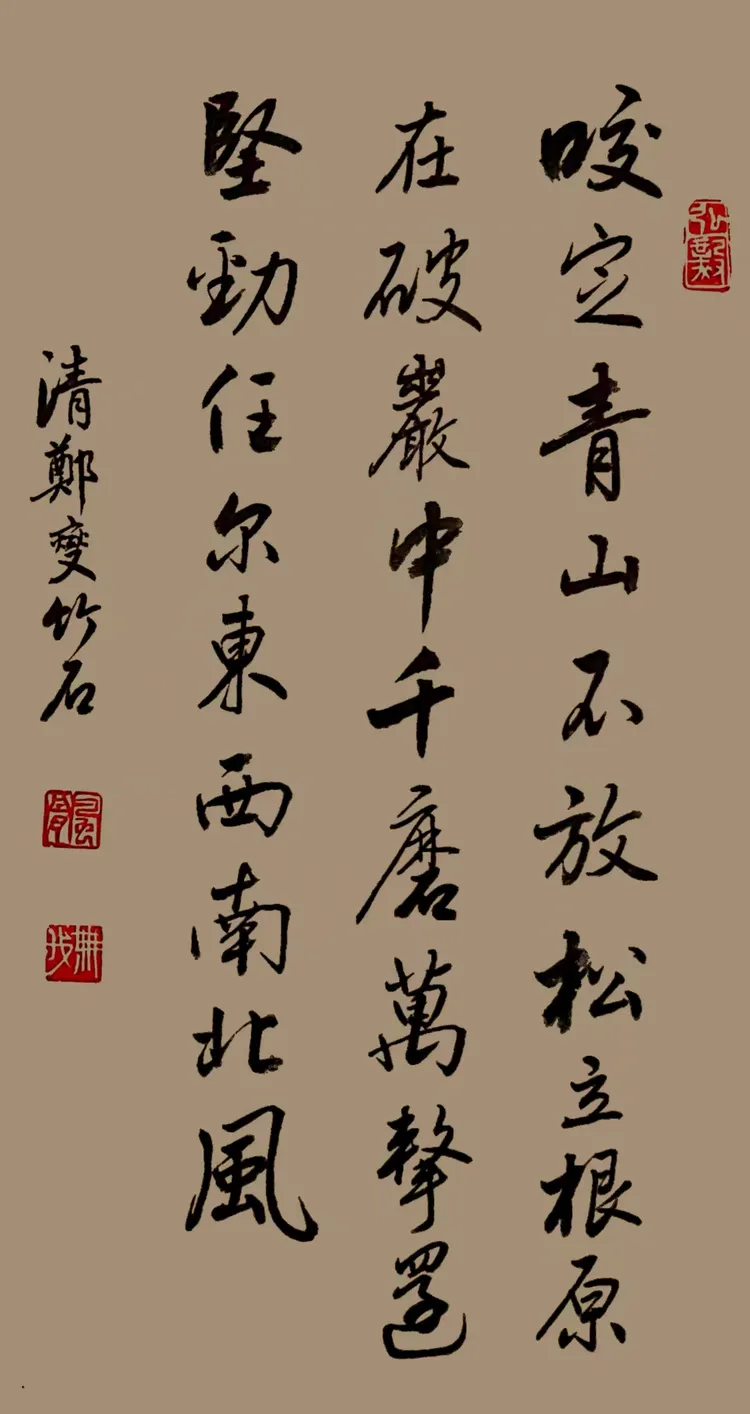 咬定青山不放松立根原
在破巖中千磨萬擊還
堅勁任尔東西南北風
清鄭燮竹石